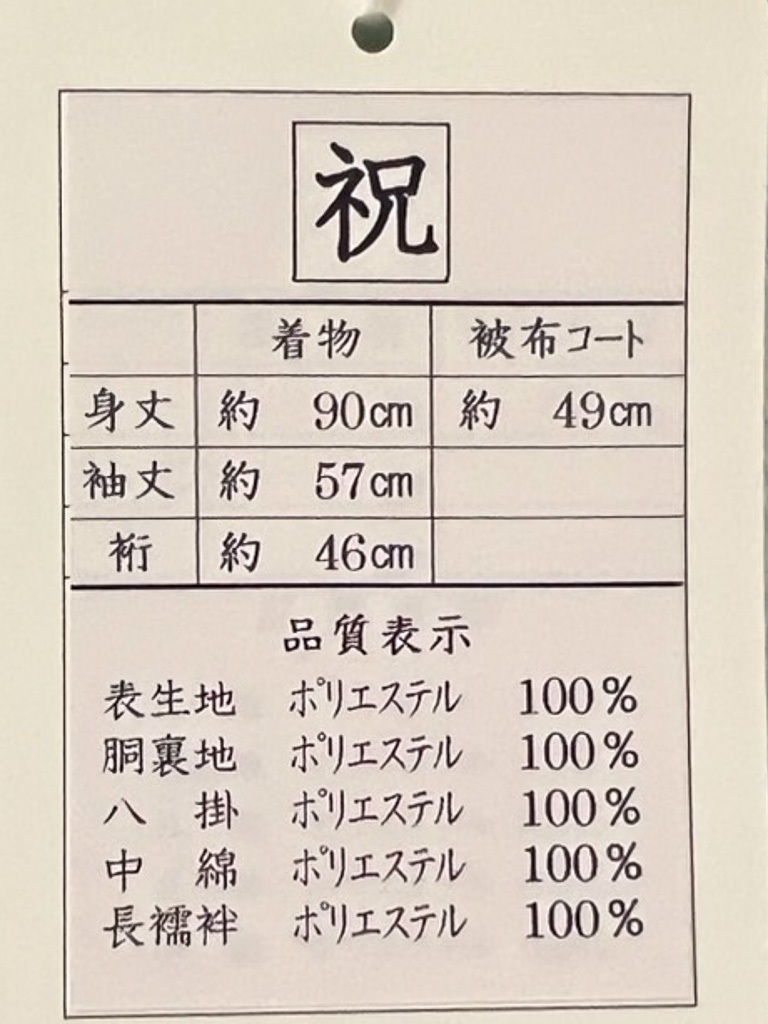 祝
着物 被布コート
身丈 約 90cm 約 49cm
袖丈 約 57cm
裄 約 46cm
品質表示
表生地 ポリエステル 100%
胴裏地 ポリエステル 100%
八掛 ポリエステル 100%
中綿 ポリエステル 100%
長襦袢 ポリエステル 100%